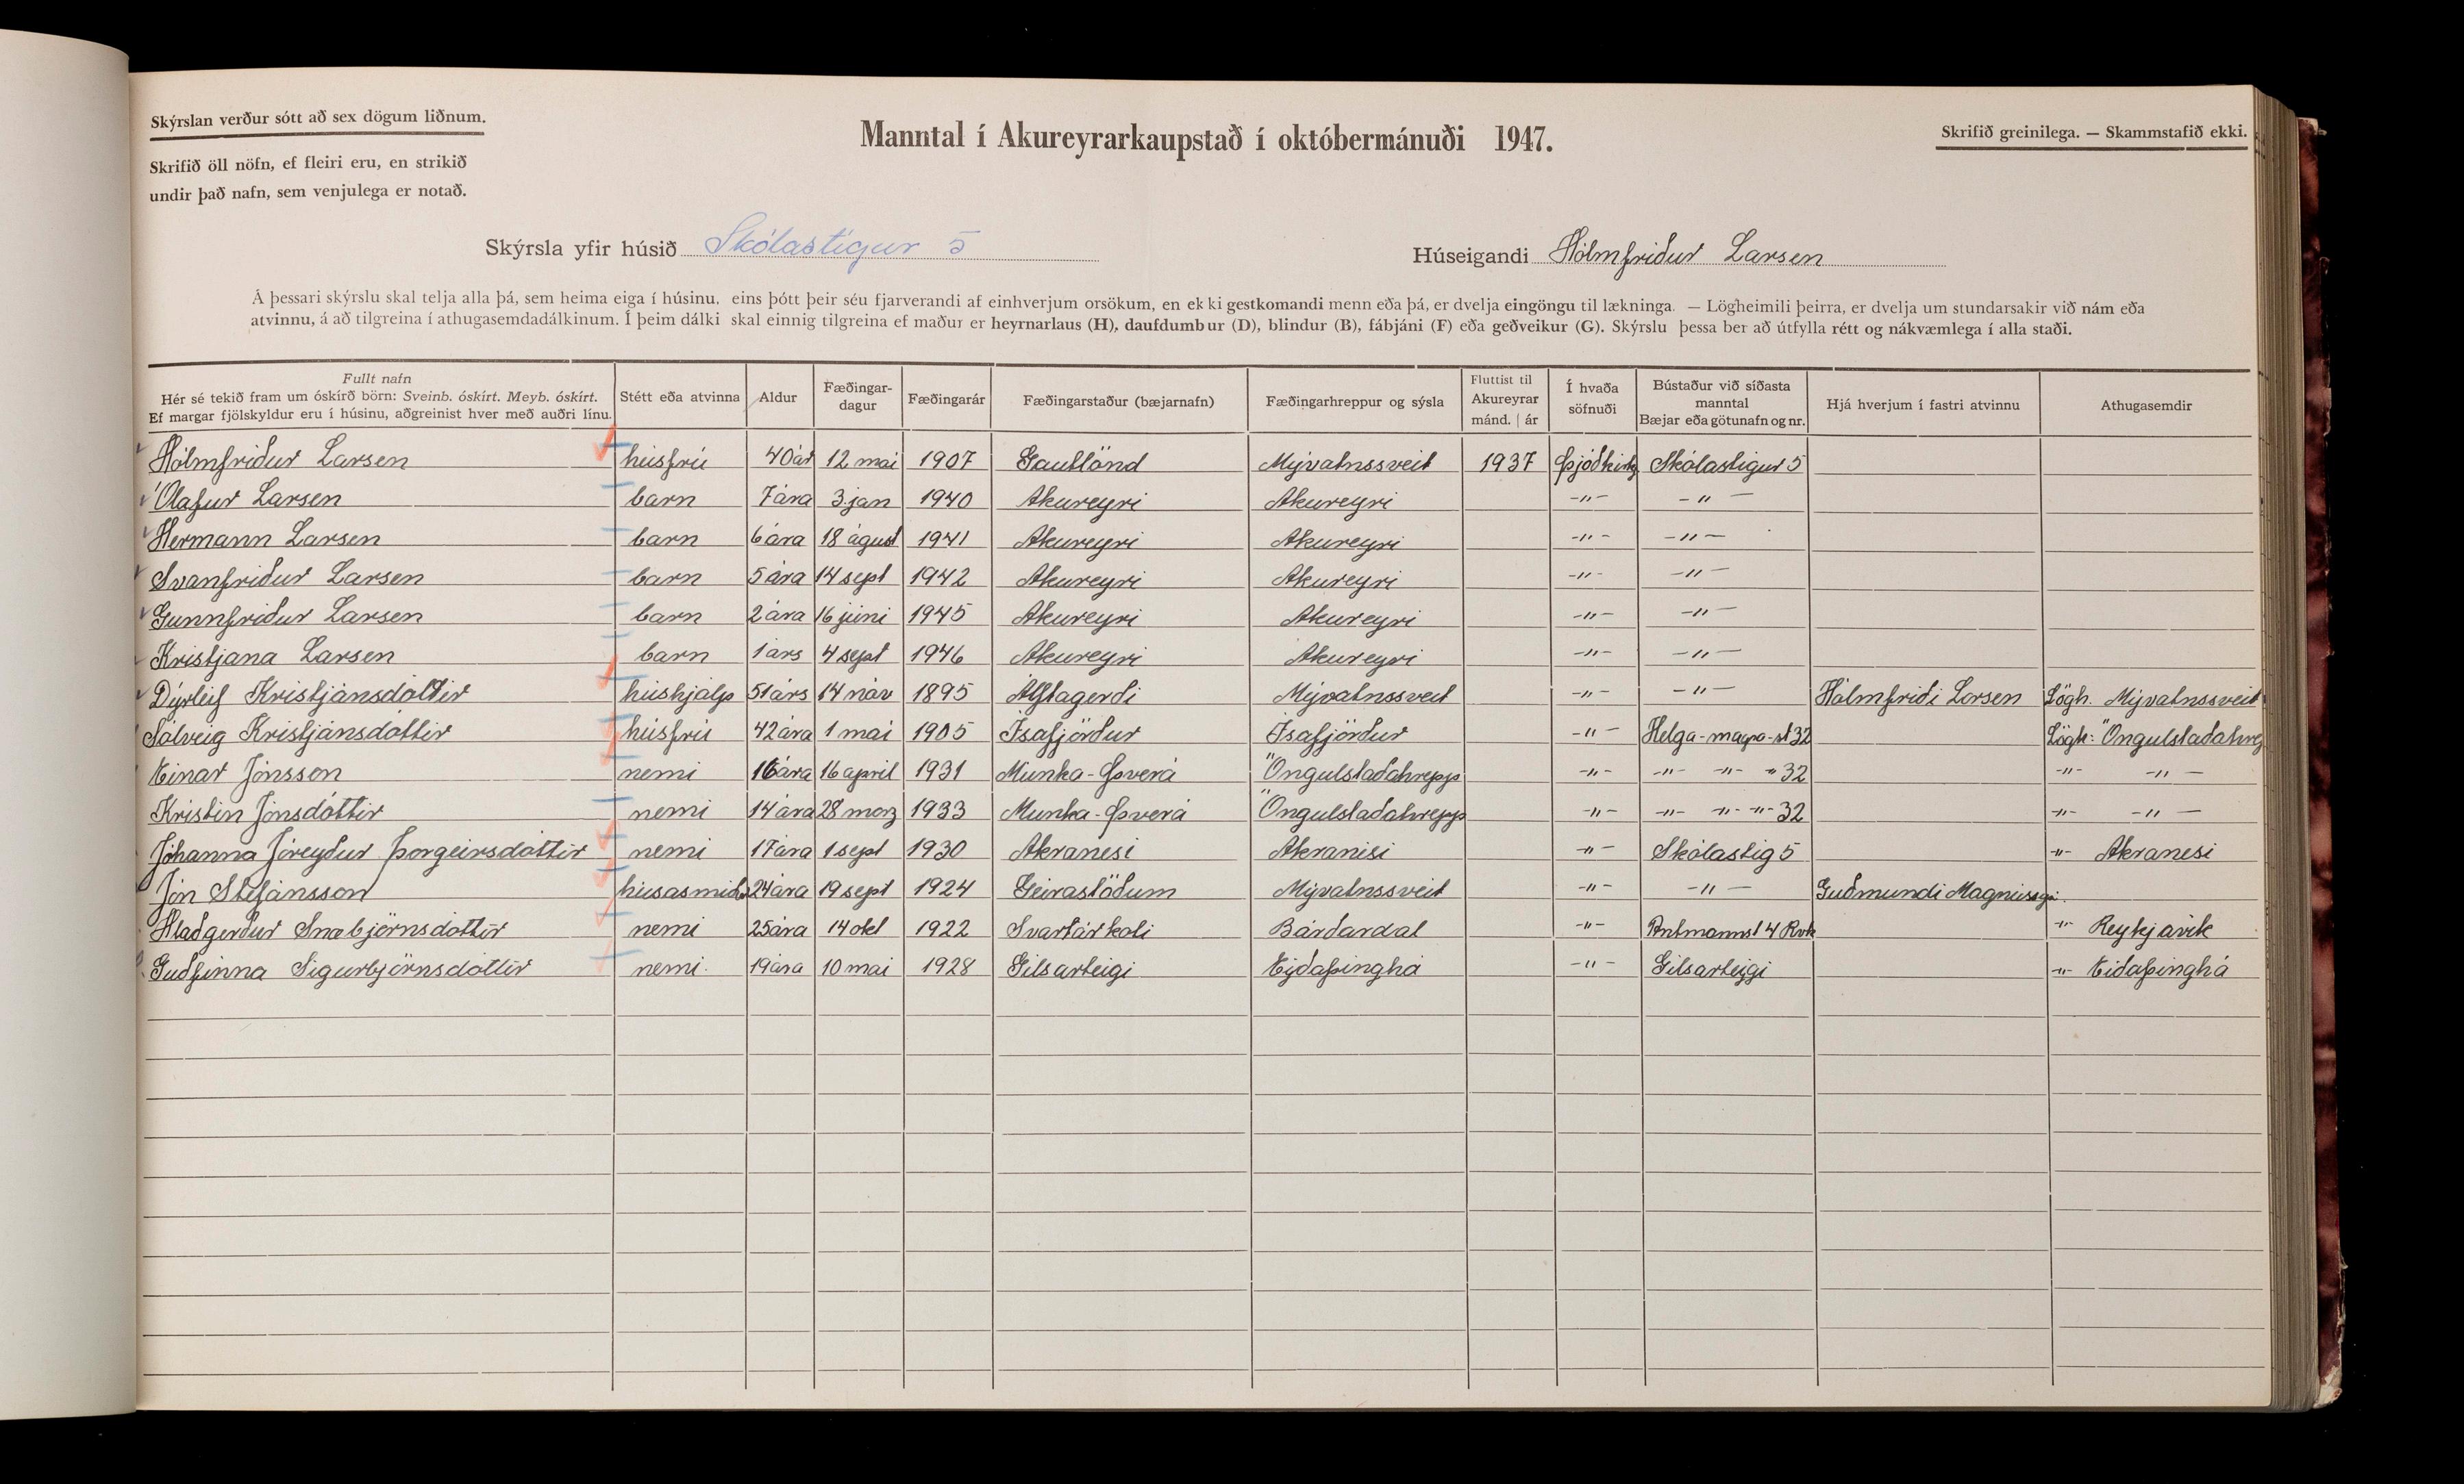 Skýrslan verður sótt að sex dögum liðnum.
Skrifið öll nöfn, ef fleiri eru, en strikið
undir það nafn, sem venjulega er notað.
Manntal í Akureyrarkaupstað í októbermánuði 1947.
Skrifið greinilega. — Skammstafið ekki.
Skýrsla yfir húsið Skólastígur 5
Húseigandi Hólmfríður Larsen
Á þessari skýrslu skal telja alla þá, sem heima eiga í húsinu, eins þótt þeir séu fjarverandi af einhverjum orsökum, en ekki gestkomandi menn eða þá, er dvelja eingöngu til lækninga. — Lögheimili þeirra, er dvelja um stundarsakir við nám eða
atvinnu, á að tilgreina í athugasemdadálkinum. Í þeim dálki skal einnig tilgreina ef maður er heyrnarlaus (H), daufdumbur (D), blindur (B), fábjáni (F) eða geðveikur (G). Skýrslu þessa ber að útfylla rétt og nákvæmlega í alla staði.
Fullt nafn
Hér sé tekið fram um óskírð börn: Sveinb. óskírt. Meyb. óskírt.
Ef margar fjölskyldur eru í húsinu, aðgreinist hver með auðri línu.
Stétt eða atvinna
Aldur
Fæðingar-
dagur
Fæðingarár
Fæðingarstaður (bæjarnafn)
Fæðingarhreppur og sýsla
Fluttist til
Akureyrar
mánd. | ár
Í hvaða
söfnuði
Bústaður við síðasta
manntal
Bæjar eða götunafn og nr.
Hjá hverjum í fastri atvinnu
Athugasemdir
Hólmfríður Larsen húsfrú 40ár 12 mai 1907 Gautlönd Mývatnssveit 1937 Þjóðkirkj Skólastígur 5
Ólafur Larsen barn 7ára 3 jan 1940 Akureyri Akureyri -"- -"-
Hermann Larsen barn 6 ára 18 ágúst 1941 Akureyri Akureyri -"- -"-
Svanfríður Larsen barn 5 ára 14 sept 1942 Akureyri Akureyri -"- -"-
Gunnfríður Larsen barn 2 ára 16 júni 1945 Akureyri Akureyri -"- -"-
Kristjana Larsen barn 1 árs 4 sept 1946 Akureyri Akureyri -"- -"-
Dýrleif Kristjánsdóttir húshjálp 51árs 14 nóv 1895 Álftagerði Mývatnssveit -"- -"- Hólmfríði Larsen Lögh. Mývatnssveit
Sólveig Kristjánsdóttir húsfrú 42ára 1 mai 1905 Ísafjörður Ísafjörður -"- Helga-magra-st 32 Lögh: Öngulstaðahrep
Einar Jónsson nemi 16ára 16 april 1931 Munka-Þverá Öngulstaðahrepp -"- -"- -"- -"- 32 -"- -"-
Kristín Jónsdóttir nemi 14 ára 28 marz 1933 Munka-Þverá Öngulstaðahrepp -"- -"- -"- -"- 32 -"- -"-
Jóhanna Jóreyður Þorgeirsdóttir nemi 17ára 1 sept 1930 Akranesi Akranisi -"- Skólastíg 5 -"- Akranesi
Jón Stefánsson húsasmiður 24ára 19 sept 1924 Geirastöðum Mývatnssveit -"- -"- Guðmundi Magnússyni
Hlaðgerður Snæbjörnsdóttir nemi 25ára 14 okt 1922 Svartárkoti Bárðardal -"- Amtmannst 4 Rvk -"- Reykjavík
Guðfinna Sigurbjörnsdóttir nemi. 19ára 10 mai 1928 Gilsárteigi Eyðaþinghá -"- Gilsárteigi -"- Eiðaþinghá